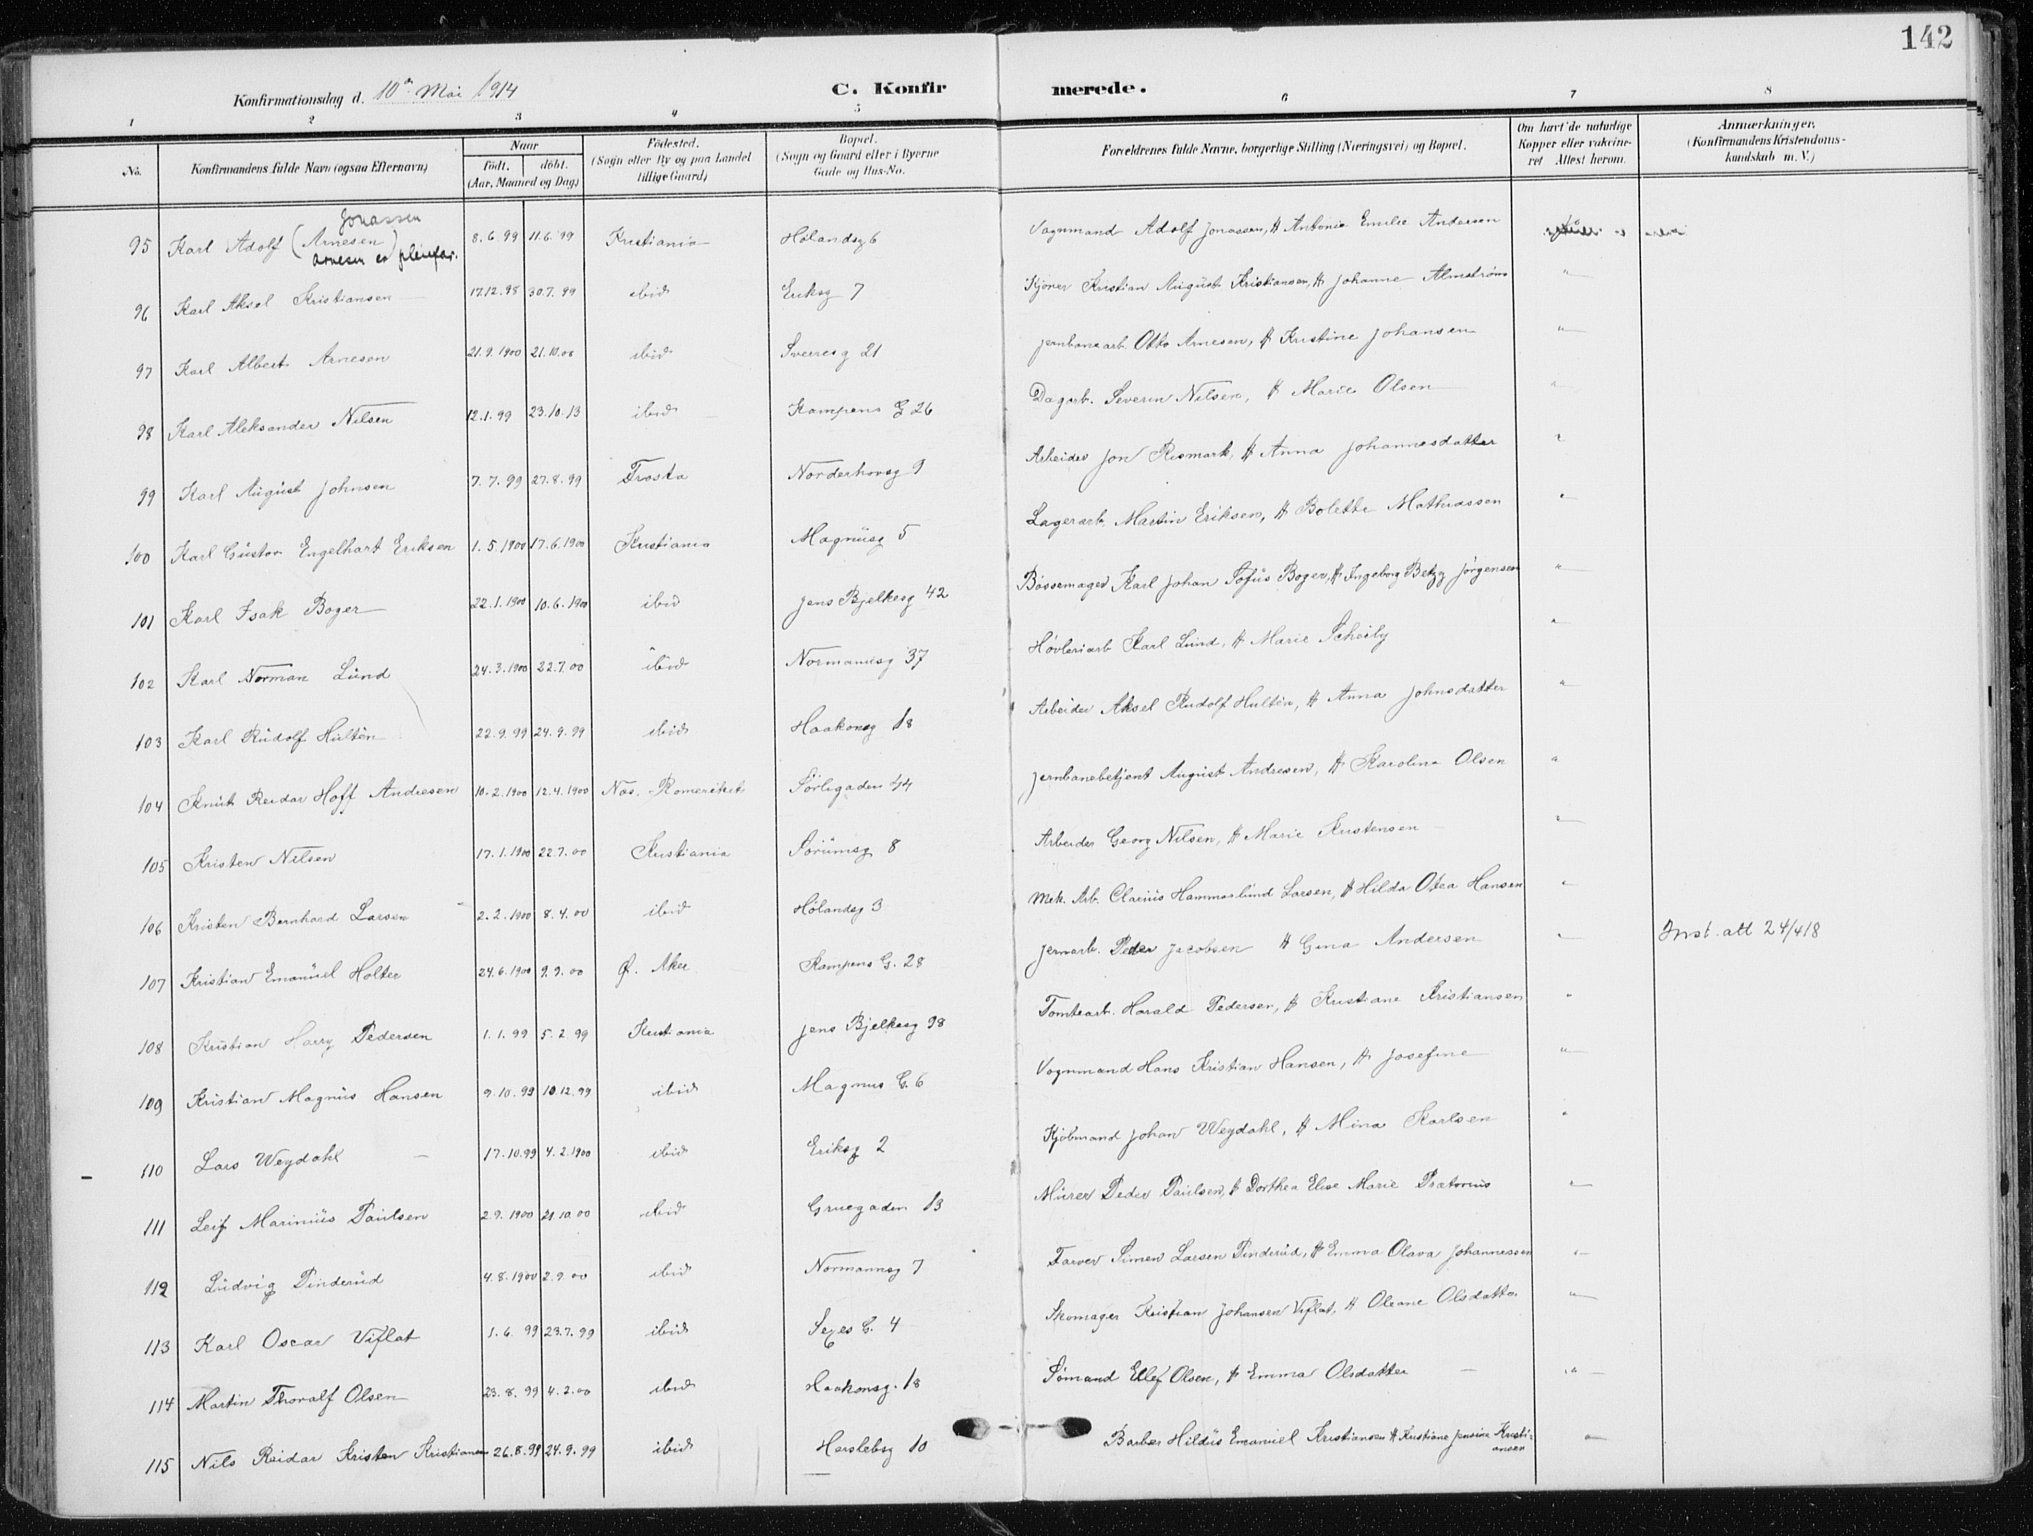 142
Konfirmationsdag d. 10de Mai 1914
C. Konfirmerede.
1 2 3 4 5 6 7 8
No. Konfirmandens fulde Navn (ogsaa Efternavn) Naar født. døbt. (Aar, Maaned og Dag) Fødested. (Sogn eller By og paa Landet tillige Gaard) Bopæl. (Sogn og Gaard eller i Byerne Gade og Hus-No. Forældrenes fulde Navne, borgerlige Stilling (Næringsvei) og Bopæl. Om havt de naturlige Kopper eller vakcineret Attest herom. Anmærkninger. (Konfirmandens Kristendomskundskab m. V.)
95 Karl Adolf (Jonassen Arnesen) Arnesen er pleiefar. 8.6.99 11.6.99 Kristiania Hølandsg 6 Vognmand Adolf Jonassen, H Antonie Emilie Andersen
96 Karl Aksel Kristiansen 17.12.98 30.7.99 ibid Eriksg 7 Kjører Kristian August Kristiansen, H Johanne Almstrøm "
97 Karl Albert Arnesen 21.9.1900 21.10.00 ibid Sverresg 21 Jernbanearb. Otto Arnesen, H Kristine Johansen "
98 Karl Aleksander Nilsen 12.1.99 23.10.13 ibid Kampens G 26 Dagarb. Severin Nilsen, H Marie Olsen "
99 Karl August Johnsen 7.7.99 27.8.99 Frosta Norderhovsg 9 Arbeider Jon Rismark, H Anna Johannesdatter "
100 Karl Gustav Engelhart Eriksen 1.5.1900 17.6.1900 Kristiania Magnusg 5 Lagerarb. Martin Eriksen, H Bolette Mathiassen "
101 Karl Isak Boger 22.1.1900 10.6.1900 ibid Jens Bjelkesg 42 Bøssemager Karl Johan Sofus Boger, H Ingeborg Betzy Jørgensen "
102 Karl Norman Lund 24.3.1900 22.7.00 ibid Normandsg 37 Høvleriarb Karl Lund, H Marie Scheiby "
103 Karl Rudolf Hultén 22.9.99 24.9.99 ibid Haakonsg 18 Arbeider Aksel Rudolf Hultén, H Anna Johnsdatter "
104 Knut Reidar Hoff Andresen 10.2.1900 12.4.1900 Nes. Romeriket Sørligaden 44 Jernbanebetjent August Andresen, H Karoline Olsen "
105 Kristen Nilsen 17.1.1900 22.7.00 Kristiania Sørumsg 8 Arbeider Georg Nilsen, H Marie Kristensen "
106 Kristen Bernhard Larsen 2.2.1900 8.4.00 ibid Hølandsg 3 Mek. Arb. Clarius Hammerlund Larsen, H Hilda Otea Hansen "
107 Kristian Emanuel Holter 24.6.1900 9.9.00 Ø. Aker Kampens G. 28 Jernarb. Peder Jacobsen H Gina Andersen " Inst. att 24/4 18
108 Kristian Harry Pedersen 1.1.99 5.2.99 Kristiania Jens Bjelkesg 98 Tomtearb. Harald Pedersen, H Kristiane Kristiansen "
109 Kristian Magnus Hansen 9.10.99 10.12.99 ibid Magnus G. 6 Vognmand Hans Kristian Hansen, H Josefine "
110 Lars Weydahl 17.10.99 4.2.1900 ibid Eriksg 2 Kjøbmand Johan Weydahl, H Mina Karlsen "
111 Leif Marinius Paulsen 2.9.1900 21.10.00 ibid Gruegaden 13 Murer Peder Paulsen, H Dorthea Elise Marie Prætorius "
112 Ludvig Pinderud 4.8.1900 2.9.00 ibid Normannsg 7 Farver Simen Larsen Pinderud, H Emma Olava Johannessen "
113 Karl Oscar Viflat 1.6.99 23.7.99 ibid Sexes G. 4 Skomager Kristian Johansen Viflat, H Oleane Olsdatter "
114 Martin Thoralf Olsen 23.8.99 4.2.00 ibid Haakonsg. 18 Sømand Ellef Olsen, H Emma Olsdatter "
115 Nils Reidar Kristen Kristiansen 26.8.99 24.9.99 ibid Herslebsg 10 Barber Hildus Emanuel Kristiansen H Kristiane Jensine Kristiansen "